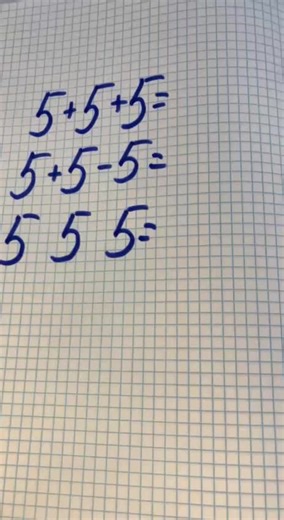 5+5+5=
5+5-5=
5 5 5=